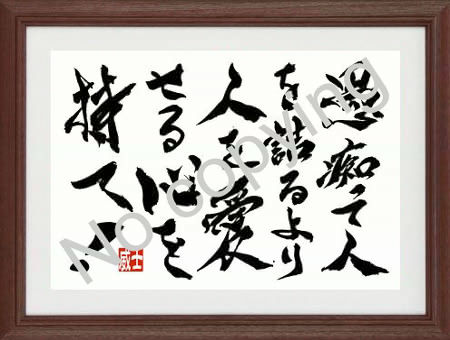 愚痴て人
を詰るより
人を愛
せる心を
持て
威士
No copying